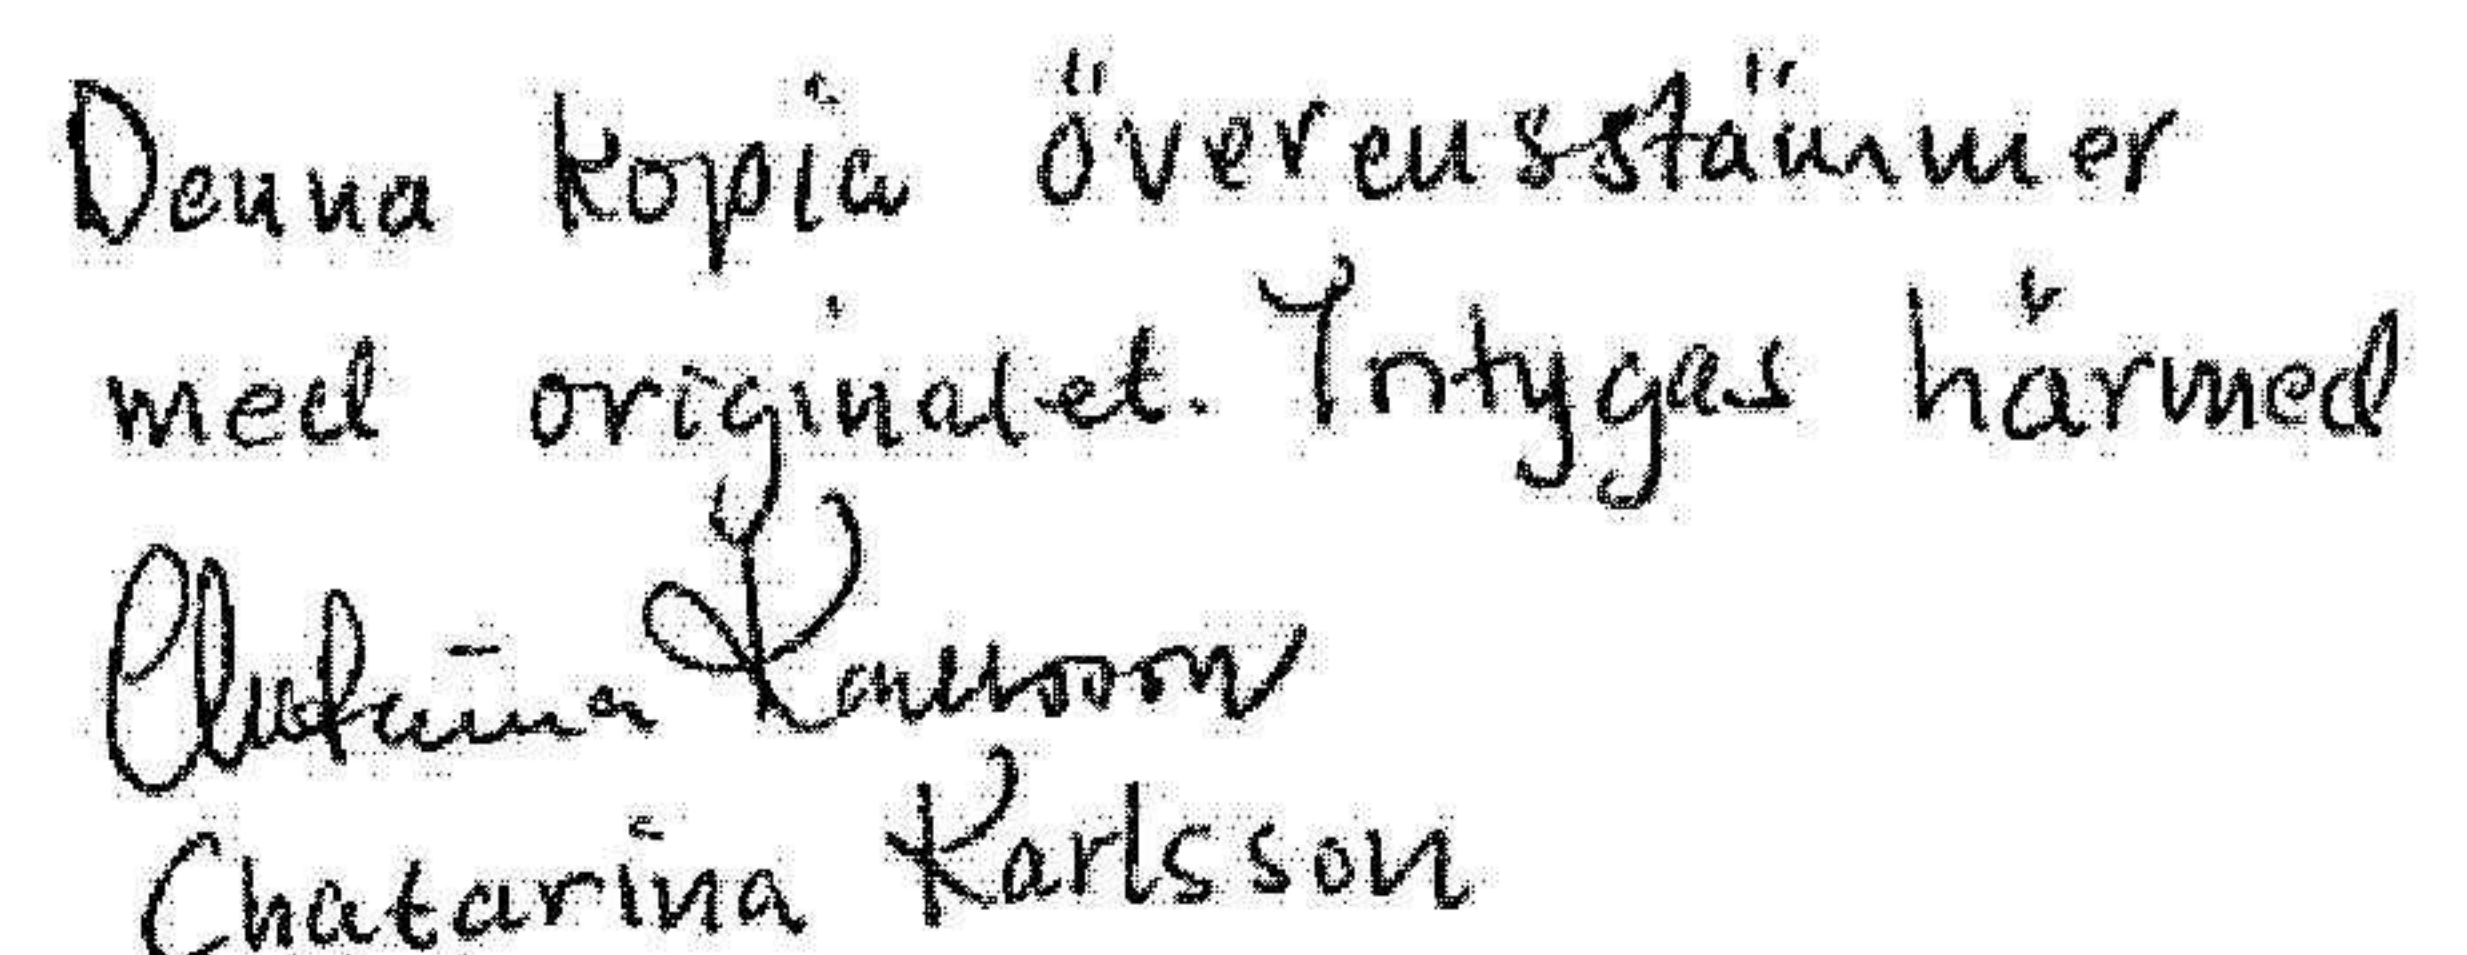 Denna kopia överensstämmer
med originalet. Intygas härmed
Chatarina Karlsson
Chatarina Karlsson